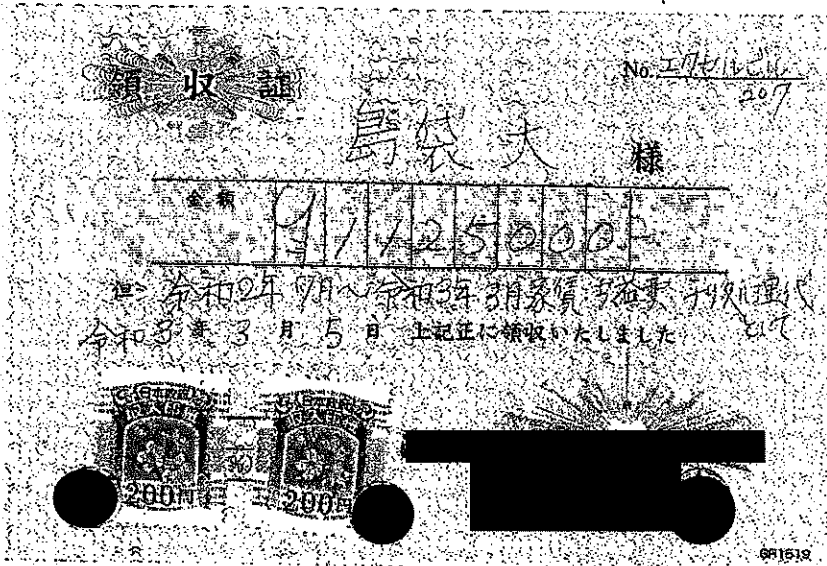 領収証
No. エクセルビル
207
島袋 大 様
金額 ¥1,125,000-
但 令和2年7月~令和3年3月家賃 共益費 ゴミ処理代
として
令和3年3月5日 上記正に領収いたしました
200円 200円
GR1519